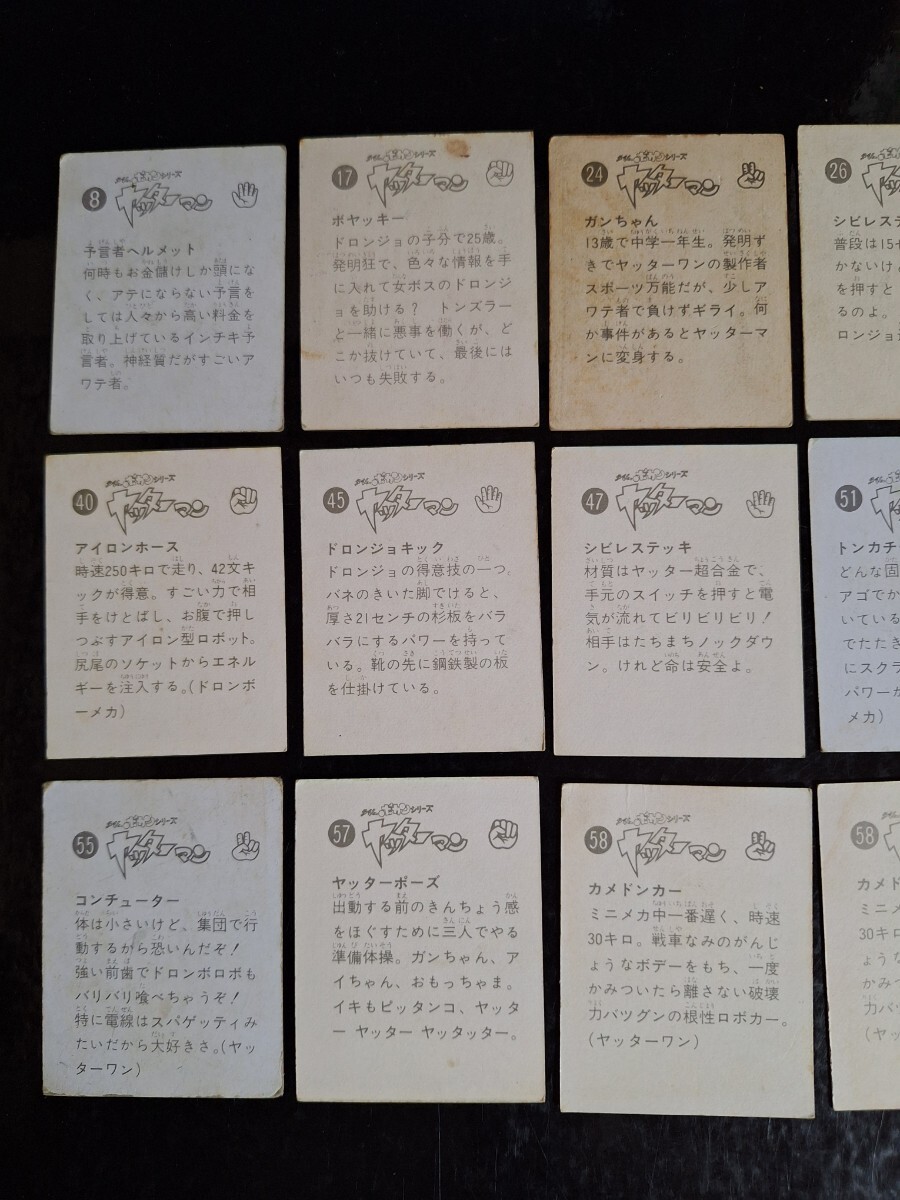 8
タイムボカンシリーズ
ヤッターマン
予言者ヘルメット
何時もお金儲けしか頭にな
く、アテにならない予言を
しては人々から高い料金を
取り上げているインチキ予
言者。神経質だがすごいア
ワテ者。
17
タイムボカンシリーズ
ヤッターマン
ボヤッキー
ドロンジョの子分で25歳。
発明狂で、色々な情報を手
に入れて女ボスのドロンジ
ョを助ける？ トンズラー
と一緒に悪事を働くが、ど
こか抜けていて、最後には
いつも失敗する。
24
タイムボカンシリーズ
ヤッターマン
ガンちゃん
13歳で中学一年生。発明ず
きでヤッターワンの製作者
スポーツ万能だが、少しア
ワテ者で負けずギライ。何
か事件があるとヤッターマ
ンに変身する。
26
シビレステ
普段は15セ
かないけ。
を押すと
るのよ。
ロンジョ
40
タイムボカンシリーズ
ヤッターマン
アイロンホース
時速250キロで走り、42文キ
ックが得意。すごい力で相
手をけとばし、お腹で押し
つぶすアイロン型ロボット。
尻尾のソケットからエネル
ギーを注入する。(ドロンボ
ーメカ)
45
タイムボカンシリーズ
ヤッターマン
ドロンジョキック
ドロンジョの得意技の一つ。
バネのきいた脚でけると、
厚さ21センチの杉板をバラ
バラにするパワーを持って
いる。靴の先に鋼鉄製の板
を仕掛けている。
47
タイムボカンシリーズ
ヤッターマン
シビレステッキ
材質はヤッター超合金で、
手元のスイッチを押すと電
気が流れてビリビリビリ！
相手はたちまちノックダウ
ン。けれど命は安全よ。
51
トンカチ
どんな固
アゴでか
いている
でたたき
にスクラ
パワーが
メカ)
55
タイムボカンシリーズ
ヤッターマン
コンチューター
体は小さいけど、集団で行
動するから恐いんだぞ！
強い前歯でドロンボロボも
バリバリ喰べちゃうぞ！
特に電線はスパゲッティみ
たいだから大好きさ。(ヤッ
ターワン)
57
タイムボカンシリーズ
ヤッターマン
ヤッターポーズ
出動する前のきんちょう感
をほぐすために三人でやる
準備体操。ガンちゃん、ア
イちゃん、おもっちゃま。
イキもピッタンコ、ヤッタ
ー ヤッター ヤッタッター。
58
タイムボカンシリーズ
ヤッターマン
カメドンカー
ミニメカ中一番遅く、時速
30キロ。戦車なみのがんじ
ょうなボデーをもち、一度
かみついたら離さない破壊
力バツグンの根性ロボカー。
(ヤッターワン)
58
カメド
ミニメ
30キロ
ような
かみつ
力バツ
(ヤッ